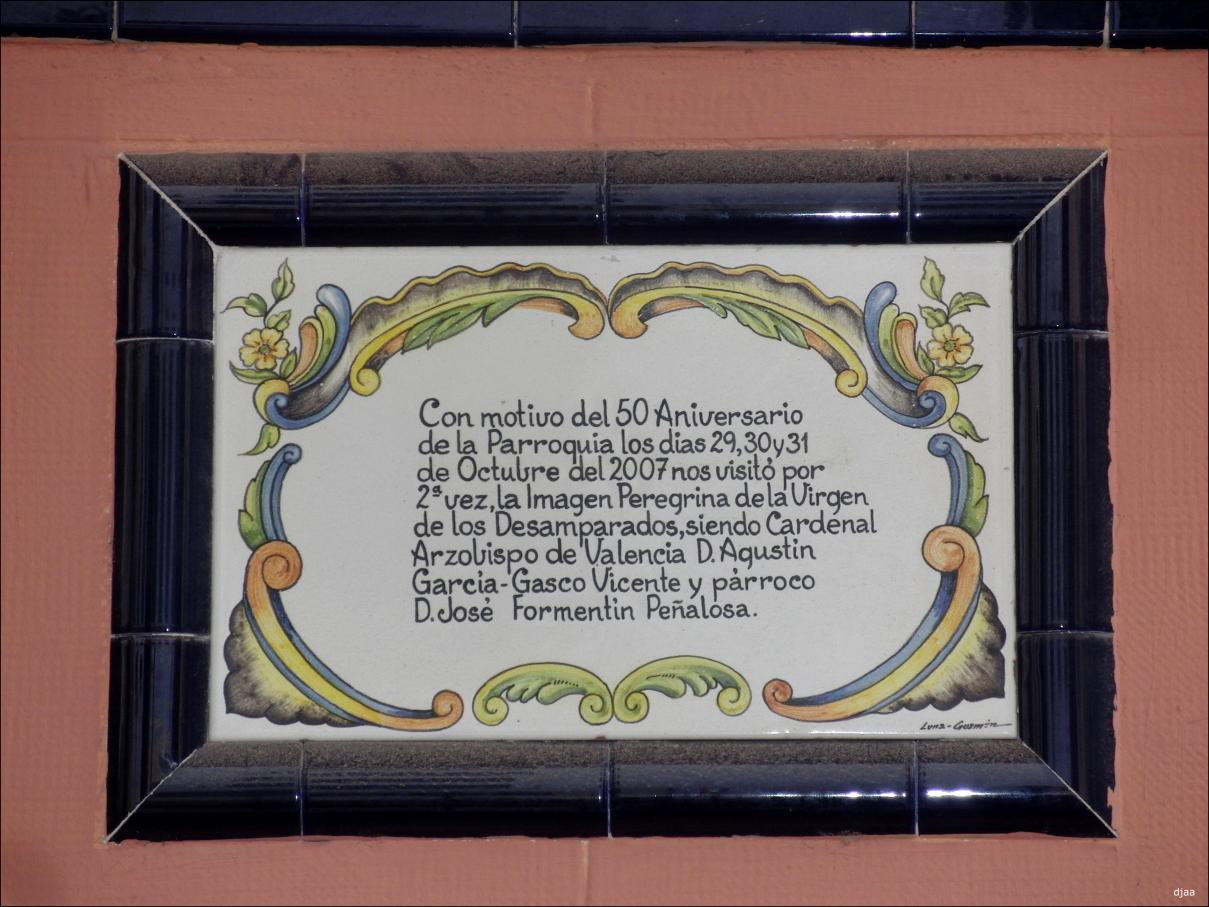 Con motivo del 50 Aniversario
de la Parroquia los dias 29,30y31
de Octubre del 2007 nos visitó por
2ª vez, la Imagen Peregrina de la Virgen
de los Desamparados, siendo Cardenal
Arzobispo de Valencia D. Agustin
Garcia-Gasco Vicente y párroco
D. José Formentin Peñalosa.
Luna-Guzmán
djaa